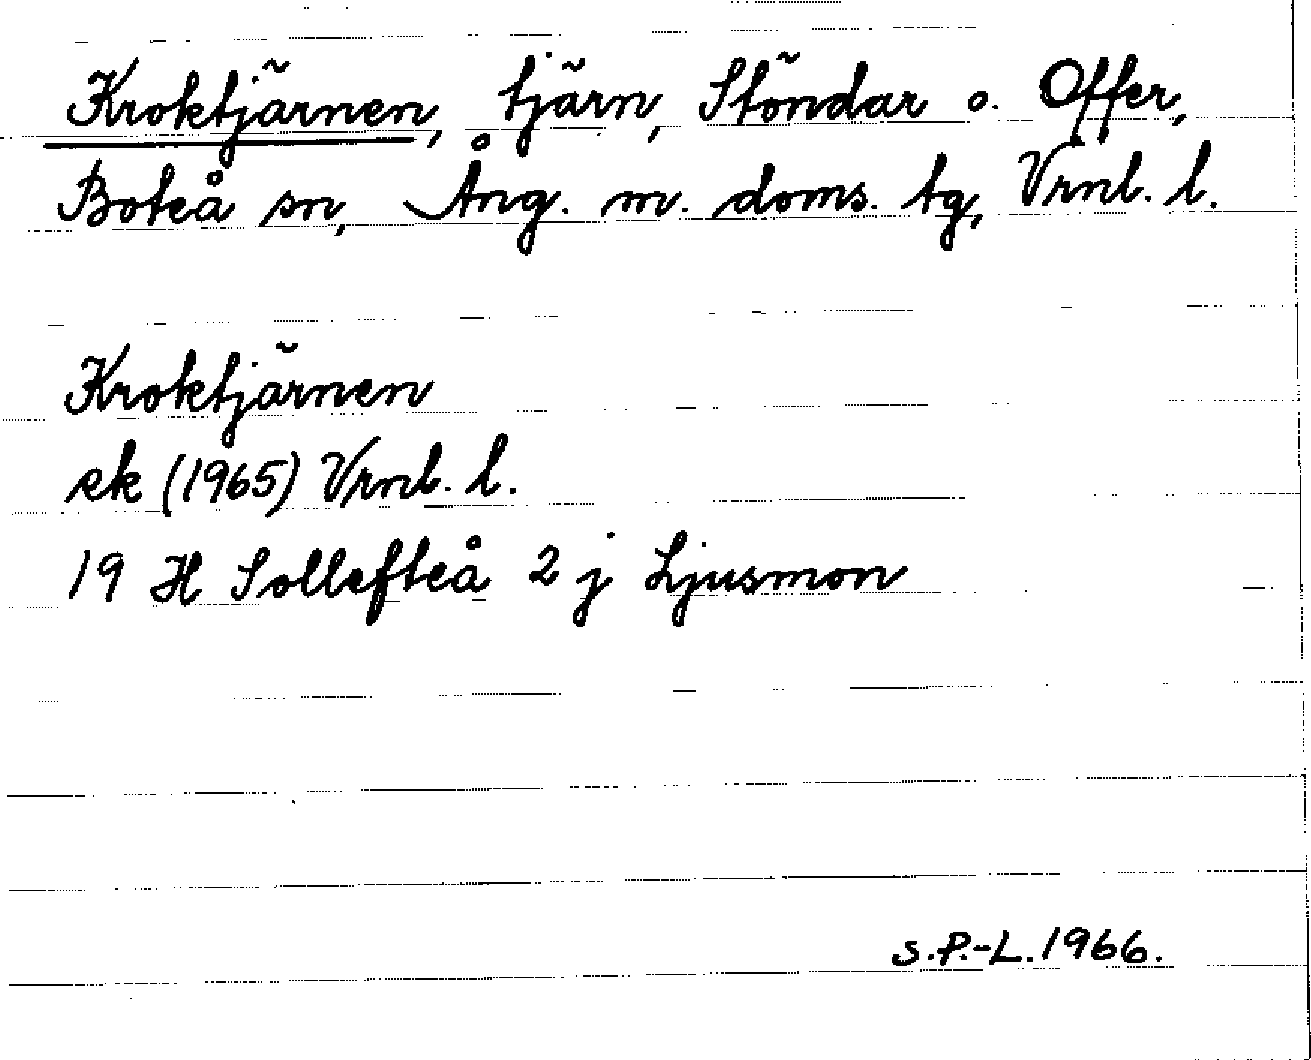 Kroktjärnen, tjärn, Stöndar o. Offer,
Boteå sn, Ång. m. doms. tg, Vrnl. l.
Kroktjärnen
ek (1965) Vrnl. l.
19 H Sollefteå 2 j Ljusmon
S.P.-L. 1966.